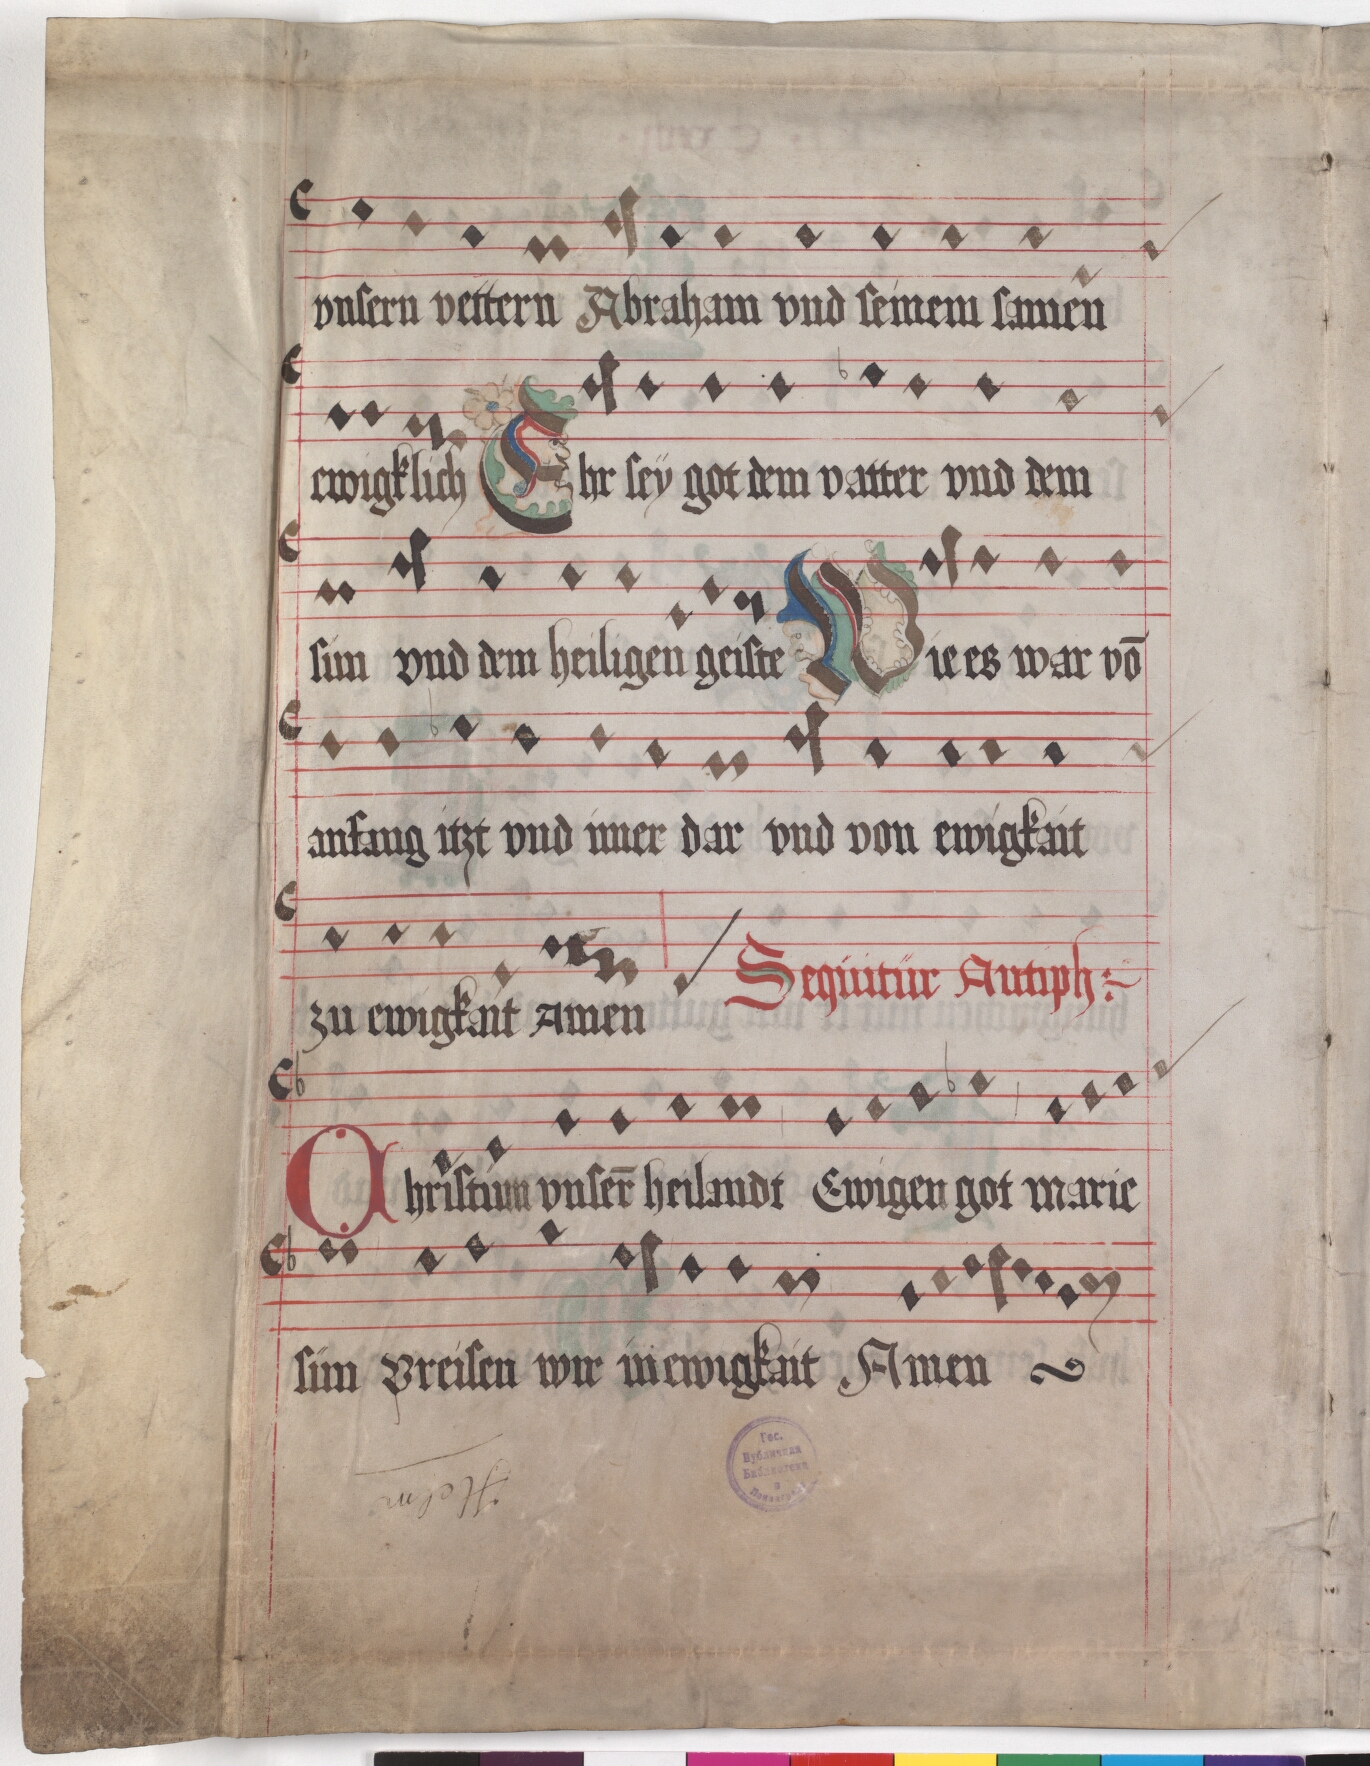 vnsern vettern Abraham vnd seinem samen
ewigklich Ehr seÿ got dem vatter vnd dem
sun vnd dem heiligen geiste Wie es war vō
anfang itzt vnd imer dar vnd von ewigkait
zu ewigkait Amen
Sequitür Antiph:
Christum vnser̄ heilandt Ewigen got marie
sun Preisen wir in ewigkait Amen
Гос.
Публичная
Библиотека
в